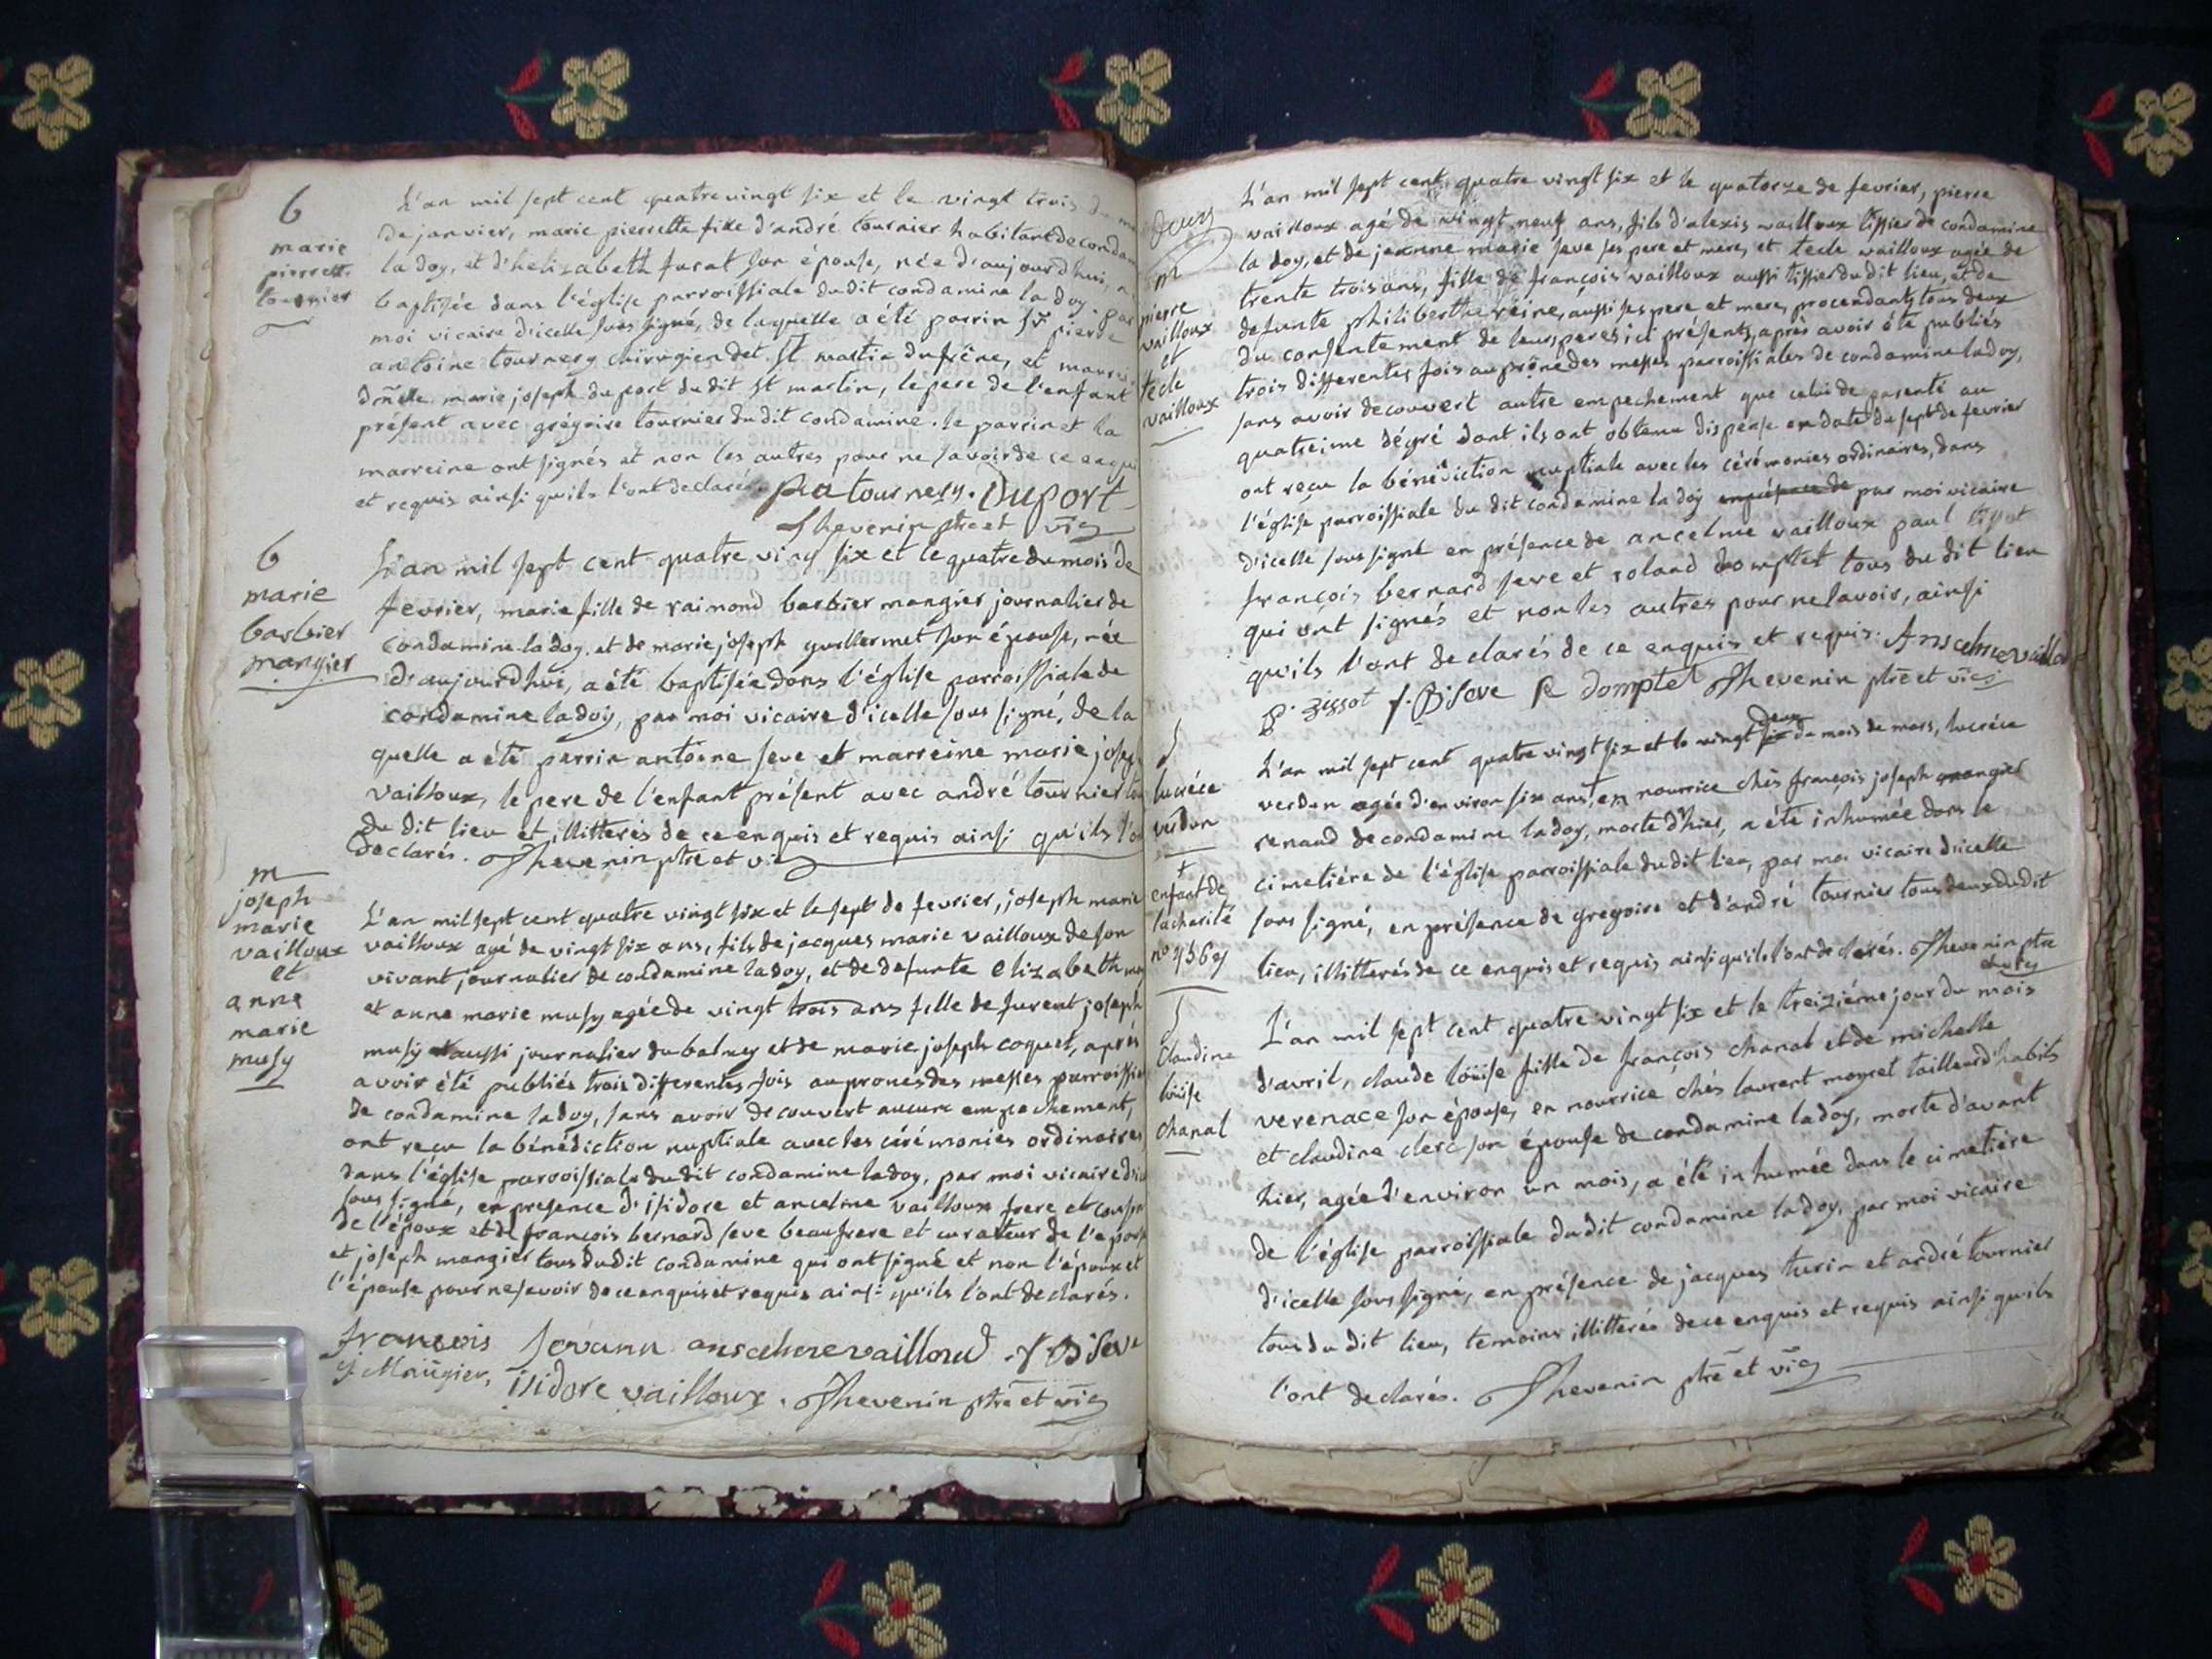 6
marie
pierrette
tournier
L'an mil sept cent quatre vingt six et le vingt trois du
de janvier, marie pierrette fille d'andré tournier habitant de condam
la doy, et d'helizabeth furat son épouse, née d'aujourd'hui, a
baptisée dans l'église parroissiale du dit condamine la doy par
moi vicaire d'icelle sous signé, de laquelle a été parrin sr pierre
antoine tournery chirugien de st martin du frêne, et marrei
dmlle marie joseph du port du dit st martin, le pere de l'enfant
présent avec grégoire tournier du dit condamine. le parrin et la
marreine ont signés et non les autres pour ne savoir de ce enqui
et requis ainsi qu'ils l'ont declarés. pra tournery. Duport
Thevenin ptre et vic
6
marie
barbier
mangier
L'an mil sept cent quatre ving six et le quatre du mois de
fevrier, marie fille de raimond barbier mangier journalier de
condamine la doy. et de marie joseph guillermet son épouse, née
d'aujourd'hui, a été baptisée dans l'église parroissiale de
condamine la doÿ, par moi vicaire d'icelle sous signé, de la
quelle a été parrin antoine seve et marreine marie josep
vailloux, le pere de l'enfant présent avec andré tournier tou
du dit lieu et illitterés de ce enquis et requis ainsi qu'ils l'on
declarés. Thevenin ptre et vic
m
joseph
marie
vailloux
et
anne
marie
musy
L'an mil sept cent quatre vingt six et le sept de fevrier, joseph marie
vailloux agé de vingt six ans, fils de jacques marie vailloux de son
vivant journalier de condamine la doy, et de defunte elizabeth
et anne marie musy agée de vingt trois ans fille de furent joseph
musy aussi journalier du balmey et de marie joseph coquet, aprés
avoir été publiés trois differentes fois au prones des messes parroissia
de condamine la doy, sans avoir decouvert aucun empechement,
ont reçu la bénédiction nuptiale avec les cérémonies ordinaires
dans l'église parroissiale du dit condamine la doy, par moi vicaire d'ic
sous signé, en presence d'isidore et ancelme vailloux frere et cousin
de l'époux et de françois bernard seve beaufrere et curateur de l'epous
et joseph mangier tous du dit condamine qui ont signé et non l'époux et
l'épouse pour ne savoir de ce enquis et requis ainsi qu'ils l'ont declarés.
francois anscelme vailloud f B seve
j Maugier, isidore vailloux. Thevenin ptre et vic
deux
m
pierre
vailloux
et
tecle
vailloux
L'an mil sept cent quatre vingt six et le quatorze de fevrier, pierre
vailloux agé de vingt neuf ans, fils d'alexis vailloux tissier de condamine
la doy, et de jeanne marie seve ses pere et mere, et tecle vailloux agée de
trente trois ans, fille de françois vailloux aussi tissier du dit lieu, et de
defunte philiberthe réine, aussi ses pere et mere, procendants tous deux
du consentement de leurs peres ici présents, aprés avoir été publiés
trois differentes fois au prône des messes parroissiales de condamine la doy,
sans avoir decouvert autre empechement que celui de parenté au
quatreime dégré dont ils ont obtenu dispense en date du sept de fevrier
ont reçu la bénédiction nuptiale avec les cérémonies ordinaires, dans
l'église parroissiale du dit condamine la doÿ par moi vicaire
d'icelle sous signé en présence de ancelme vailloux paul
françois bernard seve et roland domptet tous du dit lieu
qui ont signés et non les autres pour ne lavoir, ainsi
qu'ils l'ont declarés de ce enquis et requis. Anscelme vaillou
P. zissot f. B seve R domptet Thevenin ptre et vic
lucréce
verdun
+
enfant de
la charité
L'an mil sept cent quatre vingt six et le vingt deux du mois de mars, lucréce
verdun agée d'environ six ans, en nourrice chés françois joseph
renaud de condamine la doy, morte d'hier, a été inhumée dans le
cimetiére de l'église parroissiale du dit lieu, par moi vicaire d'icelle
sous signé, en présence de gregoire et d'andré tournier tous deux du dit
lieu, illitterés de ce enquis et requis ainsi qu'ils l'ont declarés. Thevenin ptre
et vic
claudine
loüise
chanal
L'an mil sept cent quatre vingt six et le treiziéme jour du mois
d'avril, claude loüise fille de françois chanal et de michelle
verenace son épouse, en nourrice chés laurent moyret tailleur d'habits
et claudine clerc son épouse de condamine la doy, morte d'avant
hier, agée d'environ un mois, a été inhumée dans le cimetiére
de l'église parroissiale du dit condamine la doy, par moi vicaire
d'icelle sous signé, en présence de jacques turin et andré tournier
tous du dit lieu, temoins illitterés de ce enquis et requis ainsi qu'ils
l'ont declarés. Thevenin ptre et vic